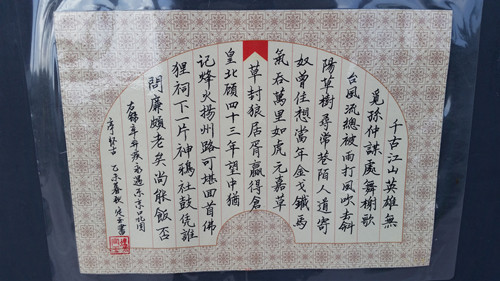 千古江山英雄無
覓孫仲謀處舞榭歌
台風流總被雨打風吹去斜
陽草樹尋常巷陌人道寄
奴曾住想當年金戈鐵馬
氣吞萬里如虎元嘉草
草封狼居胥贏得倉
皇北顧四十三年望中猶
記烽火揚州路可堪回首佛
狸祠下一片神鴉社鼓凭誰
問廉頗老矣尚能飯否
右錄辛弃疾永遇樂京口北固
亭懷古 乙未暮秋 書